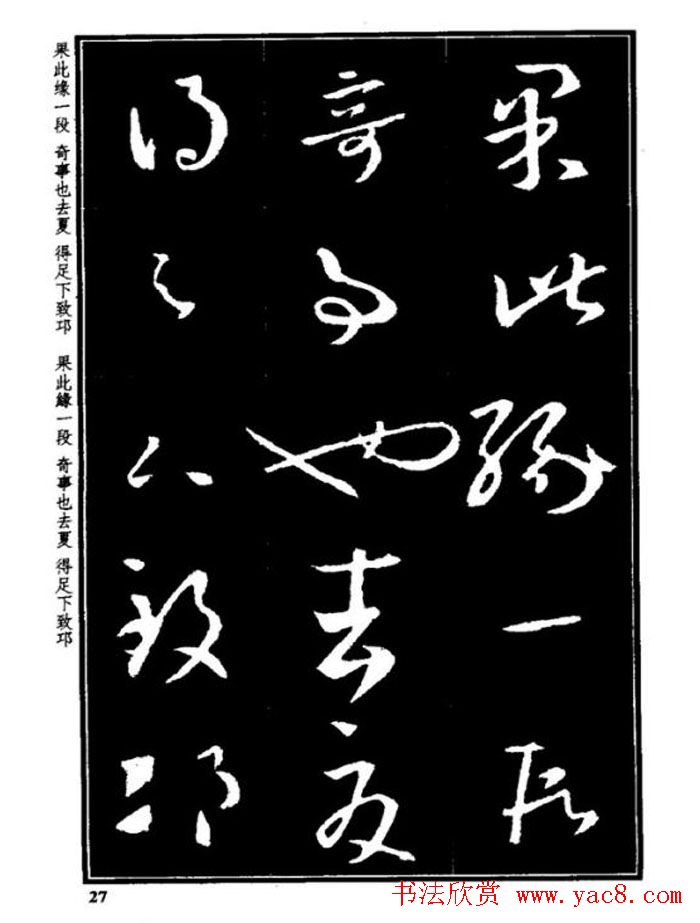 果此缘一段
奇事也去夏
得足下致邛
果此缘一段 奇事也去夏 得足下致邛
果此緣一段 奇事也去夏 得足下致邛
27
书法欣赏 www.yac8.com